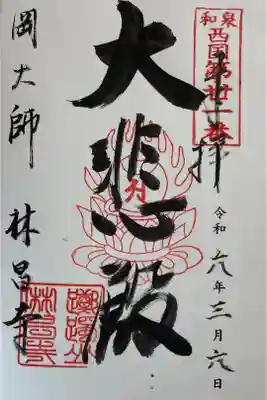 和泉
西国第廿一番
奉拝
令和六年三月六日
大悲殿
岡大師 林昌寺
躑躅山
林昌寺